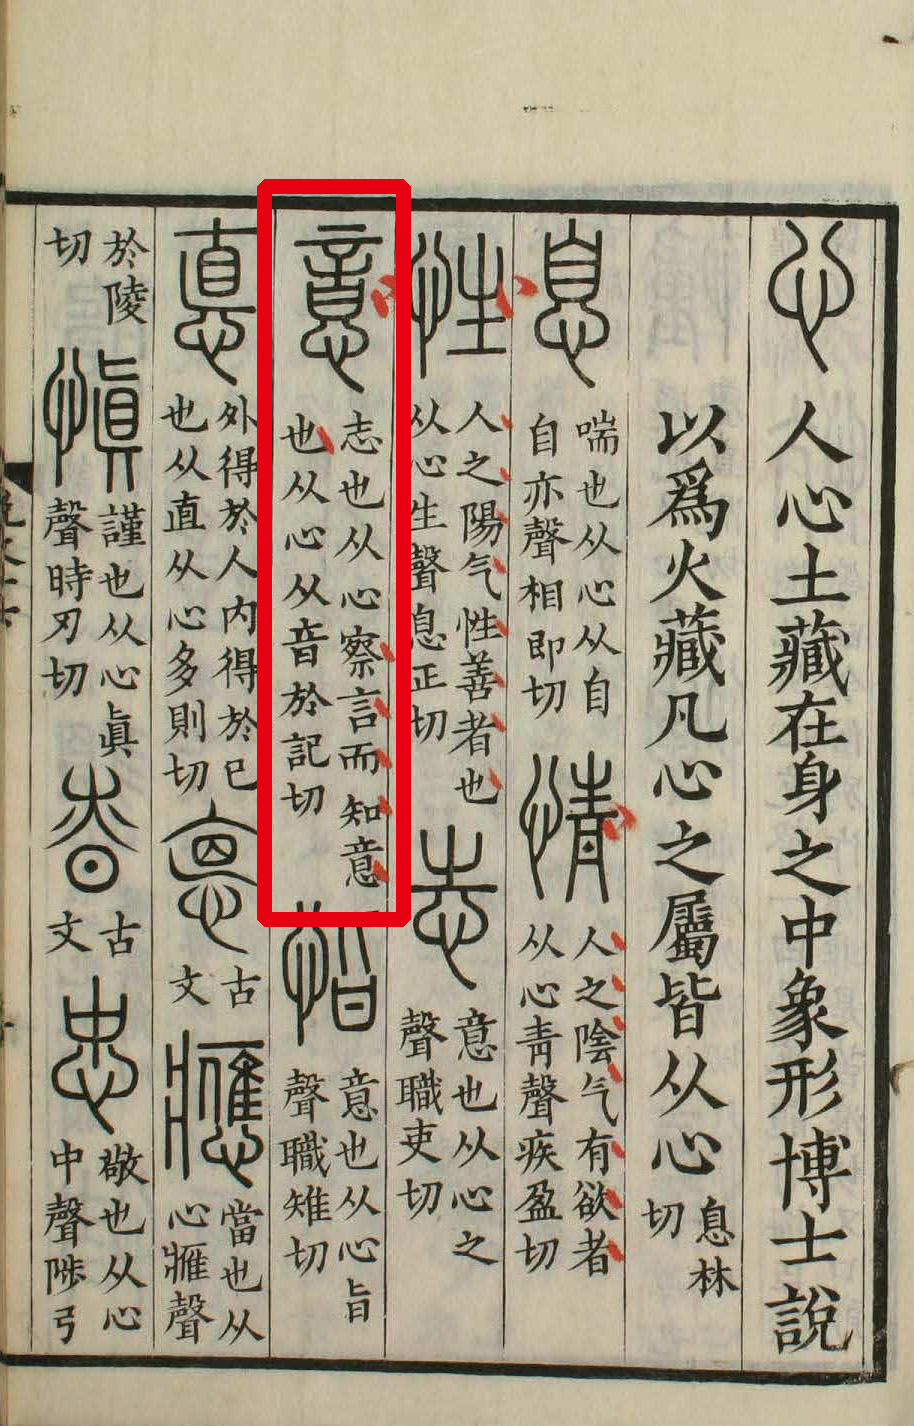 心人心土藏在身之中象形博士說
以爲火藏凡心之屬皆从心息林切
息喘也从心从自自亦聲相即切情人之陰气有欲者从心青聲疾盈切
性人之陽气性善者也从心生聲息正切志意也从心之聲職吏切
意志也从心察言而知意也从心从音於記切恉意也从心旨聲職雉切
悳外得於人内得於己也从直从心多則切㥁古文應當也从心䧹聲
於陵切愼謹也从心眞聲時刃切昚古文忠敬也从心中聲陟弓